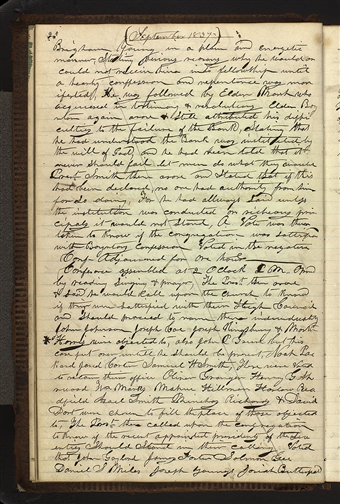 22
September 1837
Brigham Young in a plain and energetic
manner, Stating various reasons why he would or
could not receive them into fellowship until
a hearty confession and repentance was man
ifested, He was followed by Elder Marsh who
acquiesced in testimony & resolutions Elder Boy
nton again arose & still attributed his diffi
culties to the failure of the Bank, Stating that
he had understood the Bank was instituted by
the will of God, and he had been told that it
never should fail let men do what they would
Prest Smith then arose and Stated that if this
had been declared, no one had authority from him
for so doing, For he had allways Said unless
the institution was conducted on richeous prin
cipals it would not Stand, A Vote was then
taken to know if the congregation was satisfied
with Boynton's Confession Voted in the negative
Conf Adjourned for one hour
Conference assembled at 2 O Clock P.M. Opn
by reading singing & prayer, The Prest then arose
& Said he would call upon the church to know
if they were Satisfied with their High Council
and should proceed to name them individualy
John Johnson Joseph Coe Joseph Kingsbury & Martin
Harris were objected to, also John P. Greene but his
case put over until he should be present, Noah Pac
kard Jared Carter Samuel H Smith, These were Voted
to retain their office Oliver Granger Henry G. Sh
erwood Wm Marks Mayhew Hillman Harlow Rea
dfield Asael Smith Phinehas Richards & David
Dort were chosen to fill the place of those objected
to The Prest then called upon the congregation
to know if the recent appointed presidents of the Sev
enties Should Stand in their calling Voted
that John Gaylord James Foster Salmon Gee
Daniel S Miles Joseph Young Josiah Butterfield